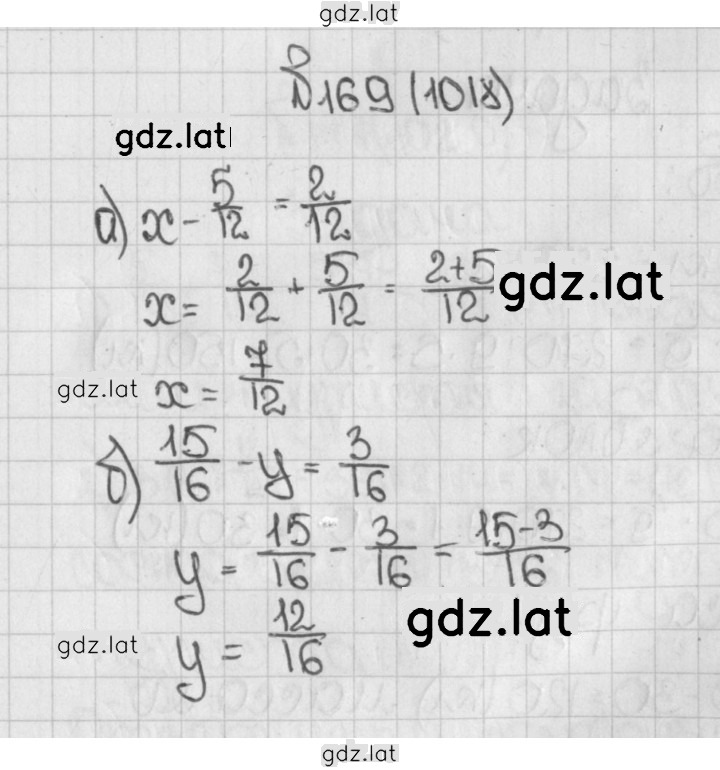 gdz.lat
№169 (1018)
gdz.lat
а) x - 5/12 = 2/12
x = 2/12 + 5/12 = (2+5)/12 gdz.lat
gdz.lat x = 7/12
б) 15/16 - y = 3/16
y = 15/16 - 3/16 = (15-3)/16
gdz.lat
gdz.lat y = 12/16
gdz.lat